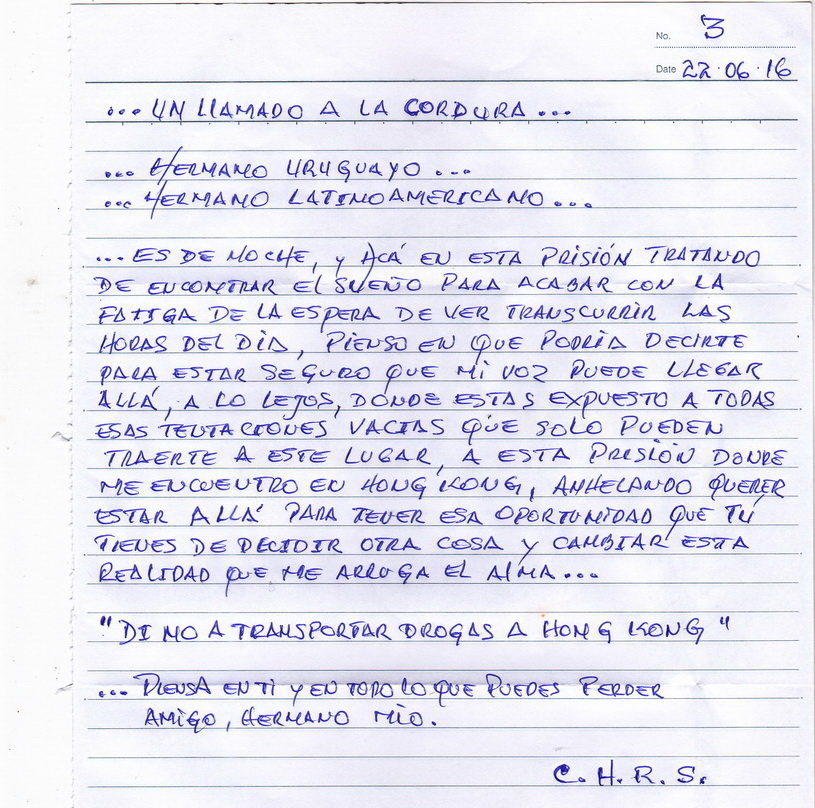 No. 3
Date 22·06·16
... UN LLAMADO A LA CORDURA ...
... HERMANO URUGUAYO ...
... HERMANO LATINOAMERICANO ...
... ES DE NOCHE, y ACÁ EN ESTA PRISIÓN TRATANDO
DE ENCONTRAR EL SUEÑO PARA ACABAR CON LA
FATIGA DE LA ESPERA DE VER TRANSCURRIR LAS
HORAS DEL DÍA, PIENSO EN QUE PODRÍA DECIRTE
PARA ESTAR SEGURO QUE MI VOZ PUEDE LLEGAR
ALLÁ, A LO LEJOS, DONDE ESTAS EXPUESTO A TODAS
ESAS TENTACIONES VACIAS QUE SOLO PUEDEN
TRAERTE A ESTE LUGAR, A ESTA PRISIÓN DONDE
ME ENCUENTRO EN HONG KONG, ANHELANDO QUERER
ESTAR ALLÁ PARA TENER ESA OPORTUNIDAD QUE TÚ
TIENES DE DECIDIR OTRA COSA y CAMBIAR ESTA
REALIDAD QUE ME ARRUGA EL ALMA...
"DI NO A TRANSPORTAR DROGAS A HONG KONG"
... PIENSA EN TI y EN TODO LO QUE PUEDES PERDER
AMIGO, HERMANO MÍO.
C.H.R.S.